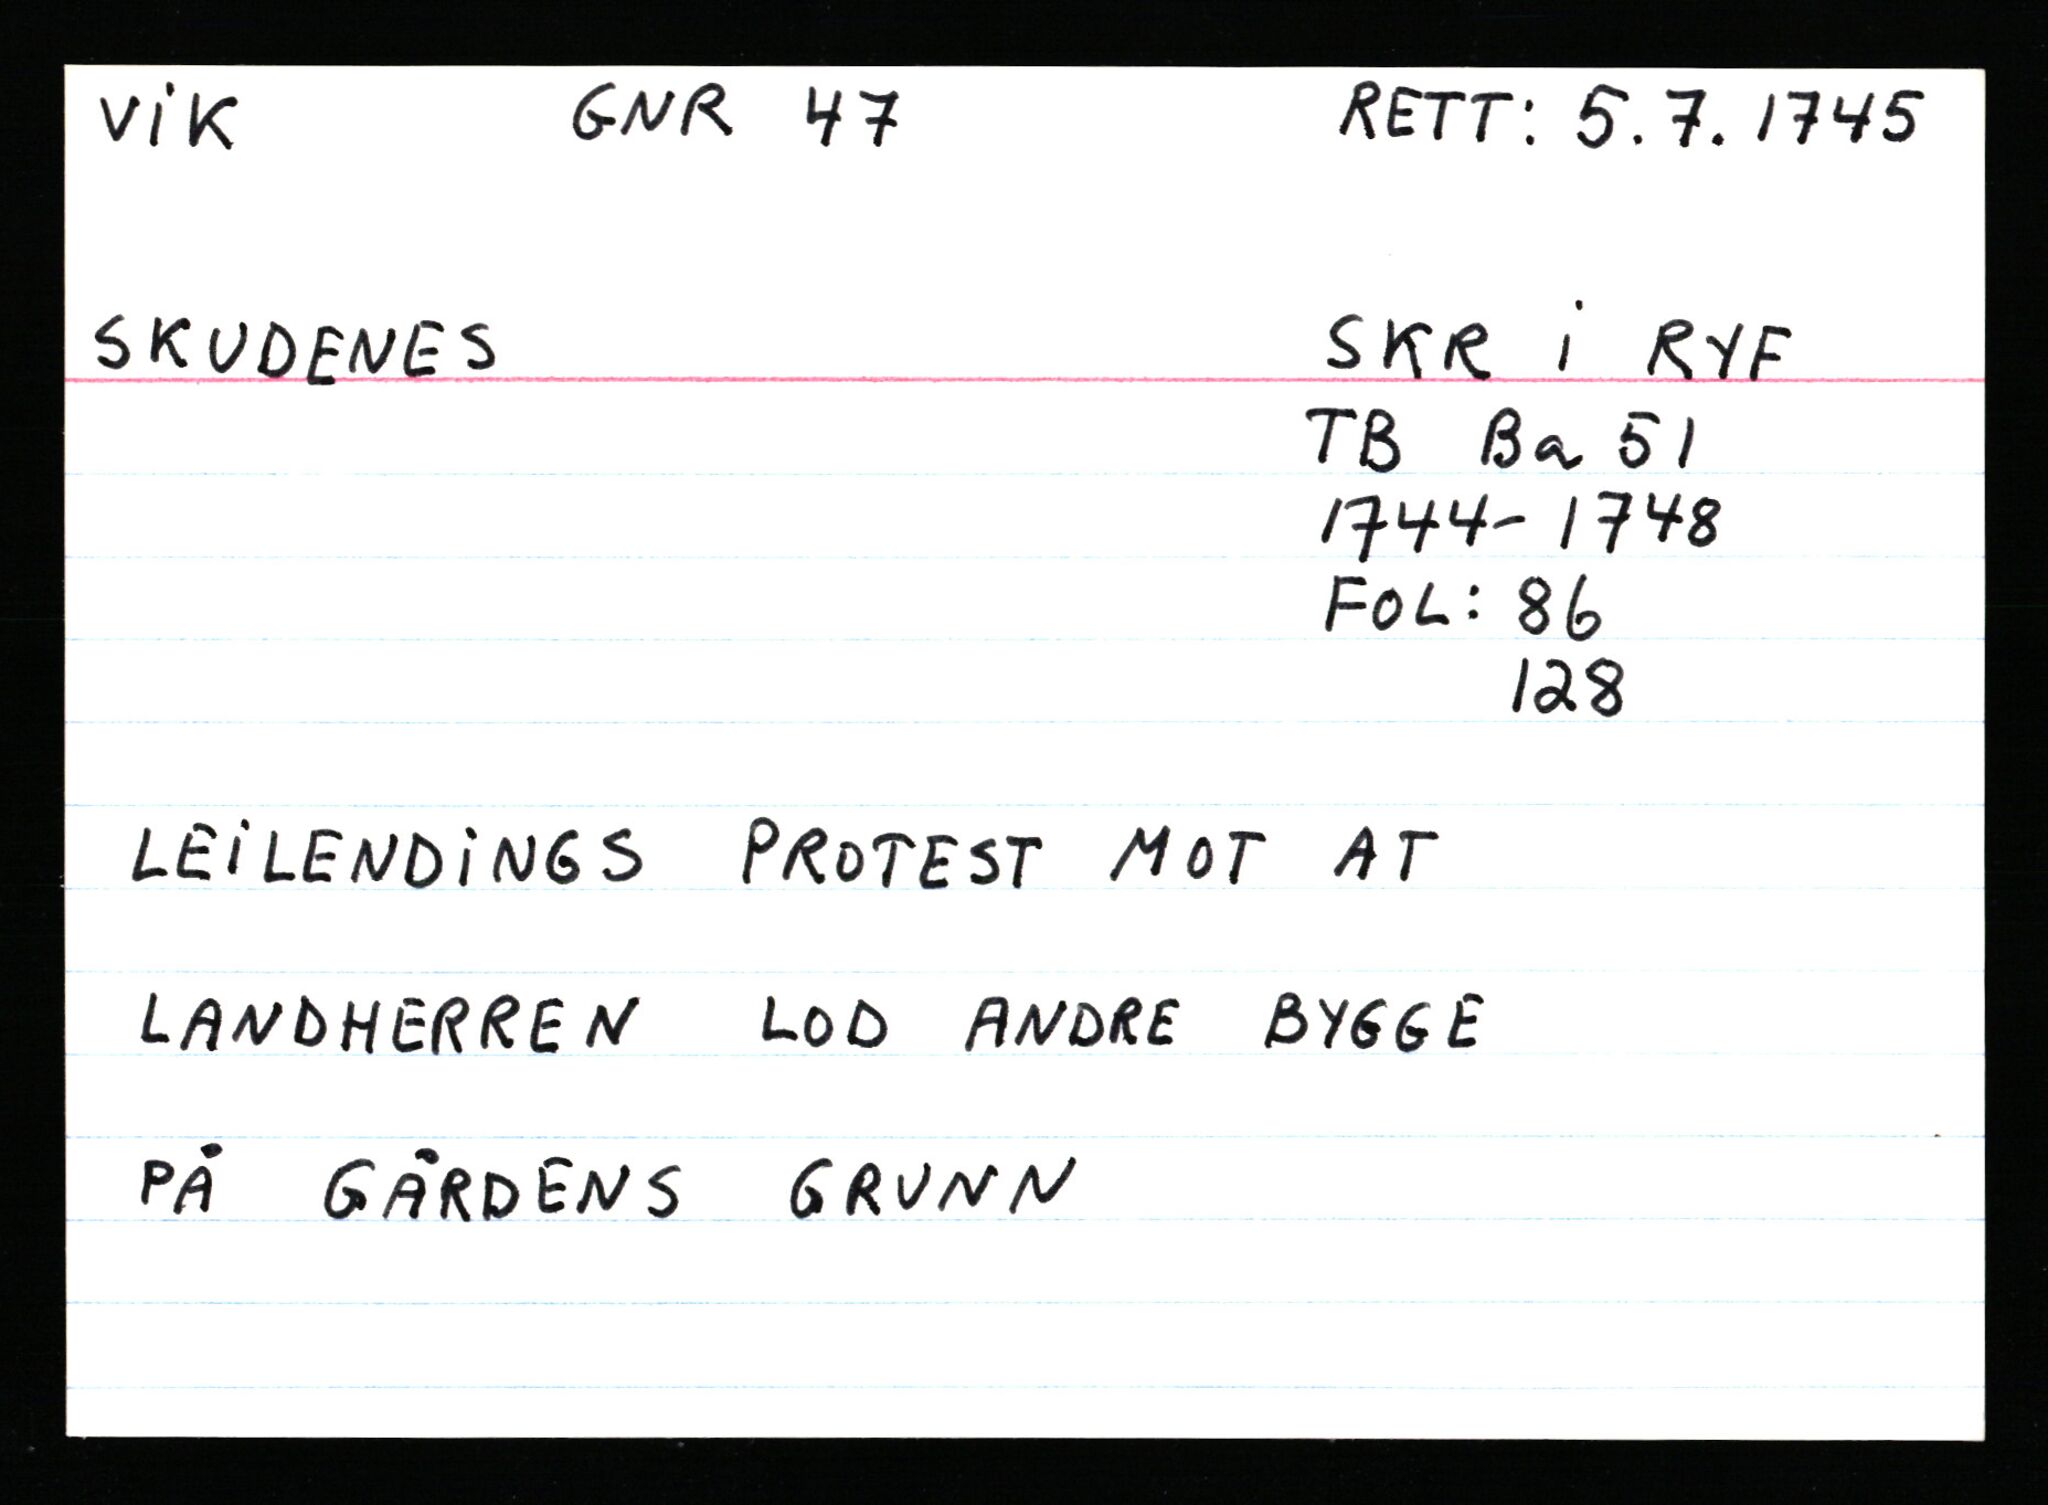 ViK GNR 47 RETT: 5.7.1745
SKUDENES SKR i RYF
TB Ba 51
1744-1748
FOL: 86
128
LEiLENDiNGS PROTEST MOT AT
LANDHERREN LOD ANDRE BYGGE
PÅ GÅRDENS GRUNN